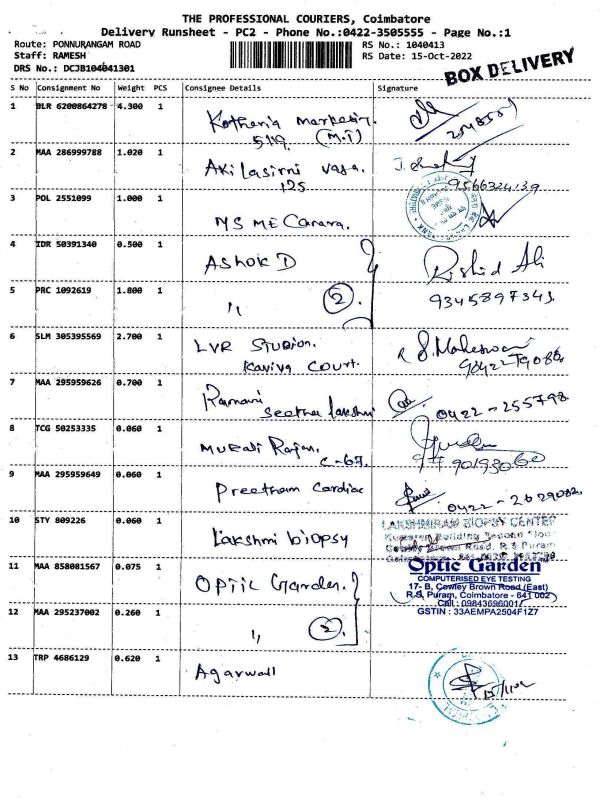 THE PROFESSIONAL COURIERS, Coimbatore
Delivery Runsheet - PC2 - Phone No.:0422-3505555 - Page No.:1
Route: PONNURANGAM ROAD RS No.: 1040413
Staff: RAMESH RS Date: 15-Oct-2022
DRS No.: DCJB104041301
BOX DELIVERY
S No Consignment No Weight PCS Consignee Details Signature
1 BLR 6200864278 4.300 1 Kothari Marketing.
519. (M.T)
2 MAA 286999788 1.020 1 Akilasirni vasa.
125
9566324139
3 POL 2551099 1.000 1
MS ME Canara.
4 IDR 50391340 0.500 1 Ashok D Rishid Ali
5 PRC 1092619 1.800 1 ,, 2. 9345897343.
6 SLM 305395569 2.700 1 LVR Studion.
Kaviya Court.
7 MAA 295959626 0.700 1 Ramani
Seetha lakshmi 0422-255798
8 TCG 50253335 0.060 1 Murali Rajan.
C-67.
9 MAA 295959649 0.060 1 Preetham Cardiac
10 STY 809226 0.060 1 Lakshmi biopsy
LAKSHMIRAM BIOPSY CENTER
Building Second Floor
Cowley Brown Road, R S Puram
11 MAA 858081567 0.075 1 Optic Garden.
Optic Garden
COMPUTERISED EYE TESTING
17- B, Cowley Brown Road,(East)
R.S. Puram, Coimbatore - 641 002
Cell : 09843696001
GSTIN : 33AEMPA2504F1Z7
12 MAA 295237002 0.260 1 ,, 2.
13 TRP 4686129 0.620 1 Agarwall